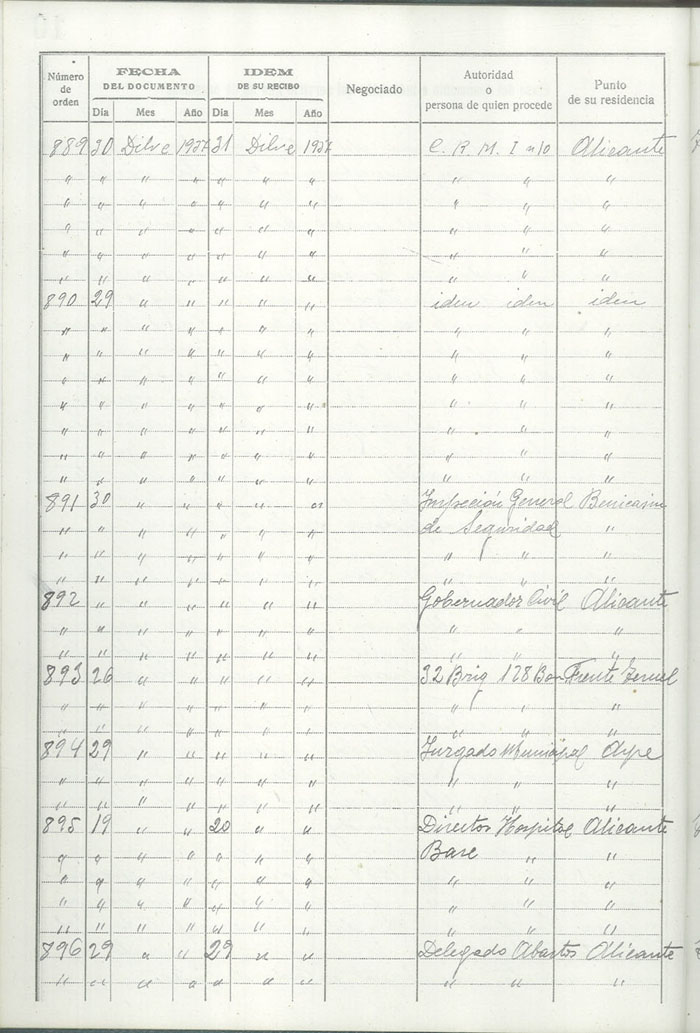 Número de orden FECHA DEL DOCUMENTO IDEM DE SU RECIBO Negociado Autoridad o persona de quien procede Punto de su residencia
Día Mes Año Día Mes Año
889 30 Dilve 1937 31 Dilve 1937 C. R. M. I n 10 Alicante
" " " " " " " " " "
" " " " " " " " " "
" " " " " " " " " "
" " " " " " " " " "
" " " " " " " " " "
890 29 " " " " " iden iden iden
" " " " " " " " " "
" " " " " " " " " "
" " " " " " " " " "
" " " " " " " " " "
" " " " " " " " " "
" " " " " " " " " "
" " " " " " " " " "
891 30 " " " " " Inspeción General Benicasim
" " " " " " " de Seguridad "
" " " " " " " " " "
" " " " " " " " " "
892 " " " " " " Gobernador Civil Alicante
" " " " " " " " " "
" " " " " " " " " "
893 26 " " " " " 32 Brig 128 Bon Frente Teruel
" " " " " " " " " "
" " " " " " " " " "
894 29 " " " " " Jurgado Municipal Aspe
" " " " " " " " " "
" " " " " " " " " "
895 19 " " 20 " " Director Hospital Alicante
" " " " " " " Base " "
" " " " " " " " " "
" " " " " " " " " "
" " " " " " " " " "
896 29 " " 29 " " Delegado Abastos Alicante
" " " " " " " " " "